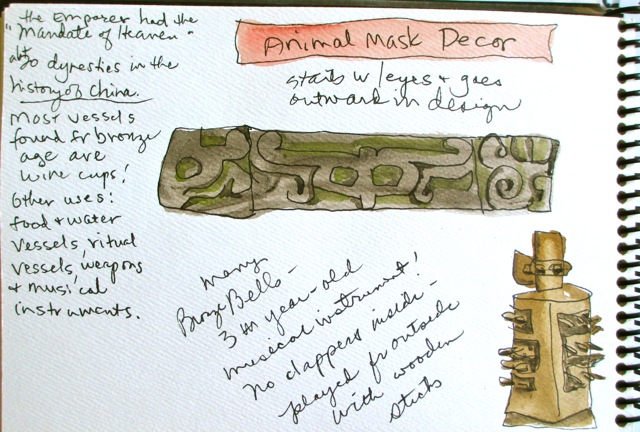 the Emporer had the
"Mandate of Heaven"
abt 30 dynesties in the
history of China.
Most vessels
found fr bronze
age are
wine cups!
Other uses:
food & water
vessels, ritual
vessels, weapons
& musical
instruments.
Animal Mask Decor
starts w/eyes & goes
outward in design
many
Bronze Bells -
3 m year-old
musical instrument!
No clappers inside -
played fr outside
with wooden
sticks